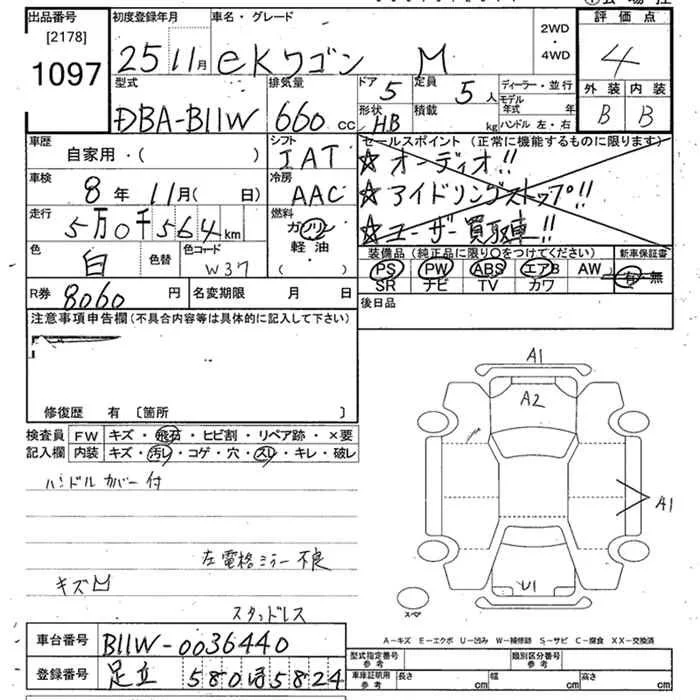 出品番号
[2178]
1097
初度登録年月
25 11月
車名・グレード
eKワゴン M
2WD
・
4WD
評価点
4
外装 内装
B B
型式
DBA-B11W
排気量
660 cc
ドア 5
定員 5人
形状 HB
積載 kg
ディーラー・並行
モデル年式 年
ハンドル 左・右
車歴
自家用・( )
シフト
IAT
セールスポイント (正常に機能するものに限ります)
☆オーディオ!!
☆アイドリングストップ!!
☆ユーザー買取車!!
車検
8年 11月( 日)
冷房
AAC
走行
5万0千564km
燃料
ガソリン
軽油
( ・ )
色
白
色替
色コード
W37
装備品 (純正品に限り○をつけてください)
PS PW ABS エアB AW
SR ナビ TV カワ
新車保証書
有・無
R券 8060円
名変期限 月 日
後日品
注意事項申告欄 (不具合内容等は具体的に記入して下さい)
修復歴 有 〔箇所 〕
検査員
記入欄
FW キズ・飛石・ヒビ割・リペア跡・×要
内装 キズ・汚レ・コゲ・穴・スレ・キレ・破レ
ハンドルカバー付
左電格ミラー不良
キズ凹
スタッドレス
A1
A2
A1
U1
スペア
A−キズ E−エクボ U−凹み W−補修跡 S−サビ C−腐食 XX−交換済
車台番号 B11W-0036440
登録番号 足立 580 5824
型式指定番号
参考
類別区分番号
参考
車庫証明用
参考
長さ cm
幅 cm
高さ cm